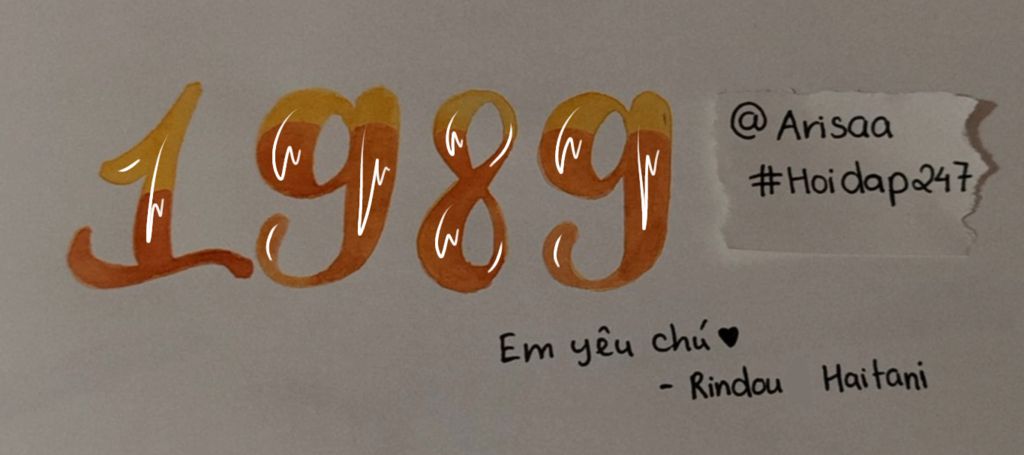 1989
@Arisaa
#Hoidap247
Em yêu chú♥
- Rindou Haitani